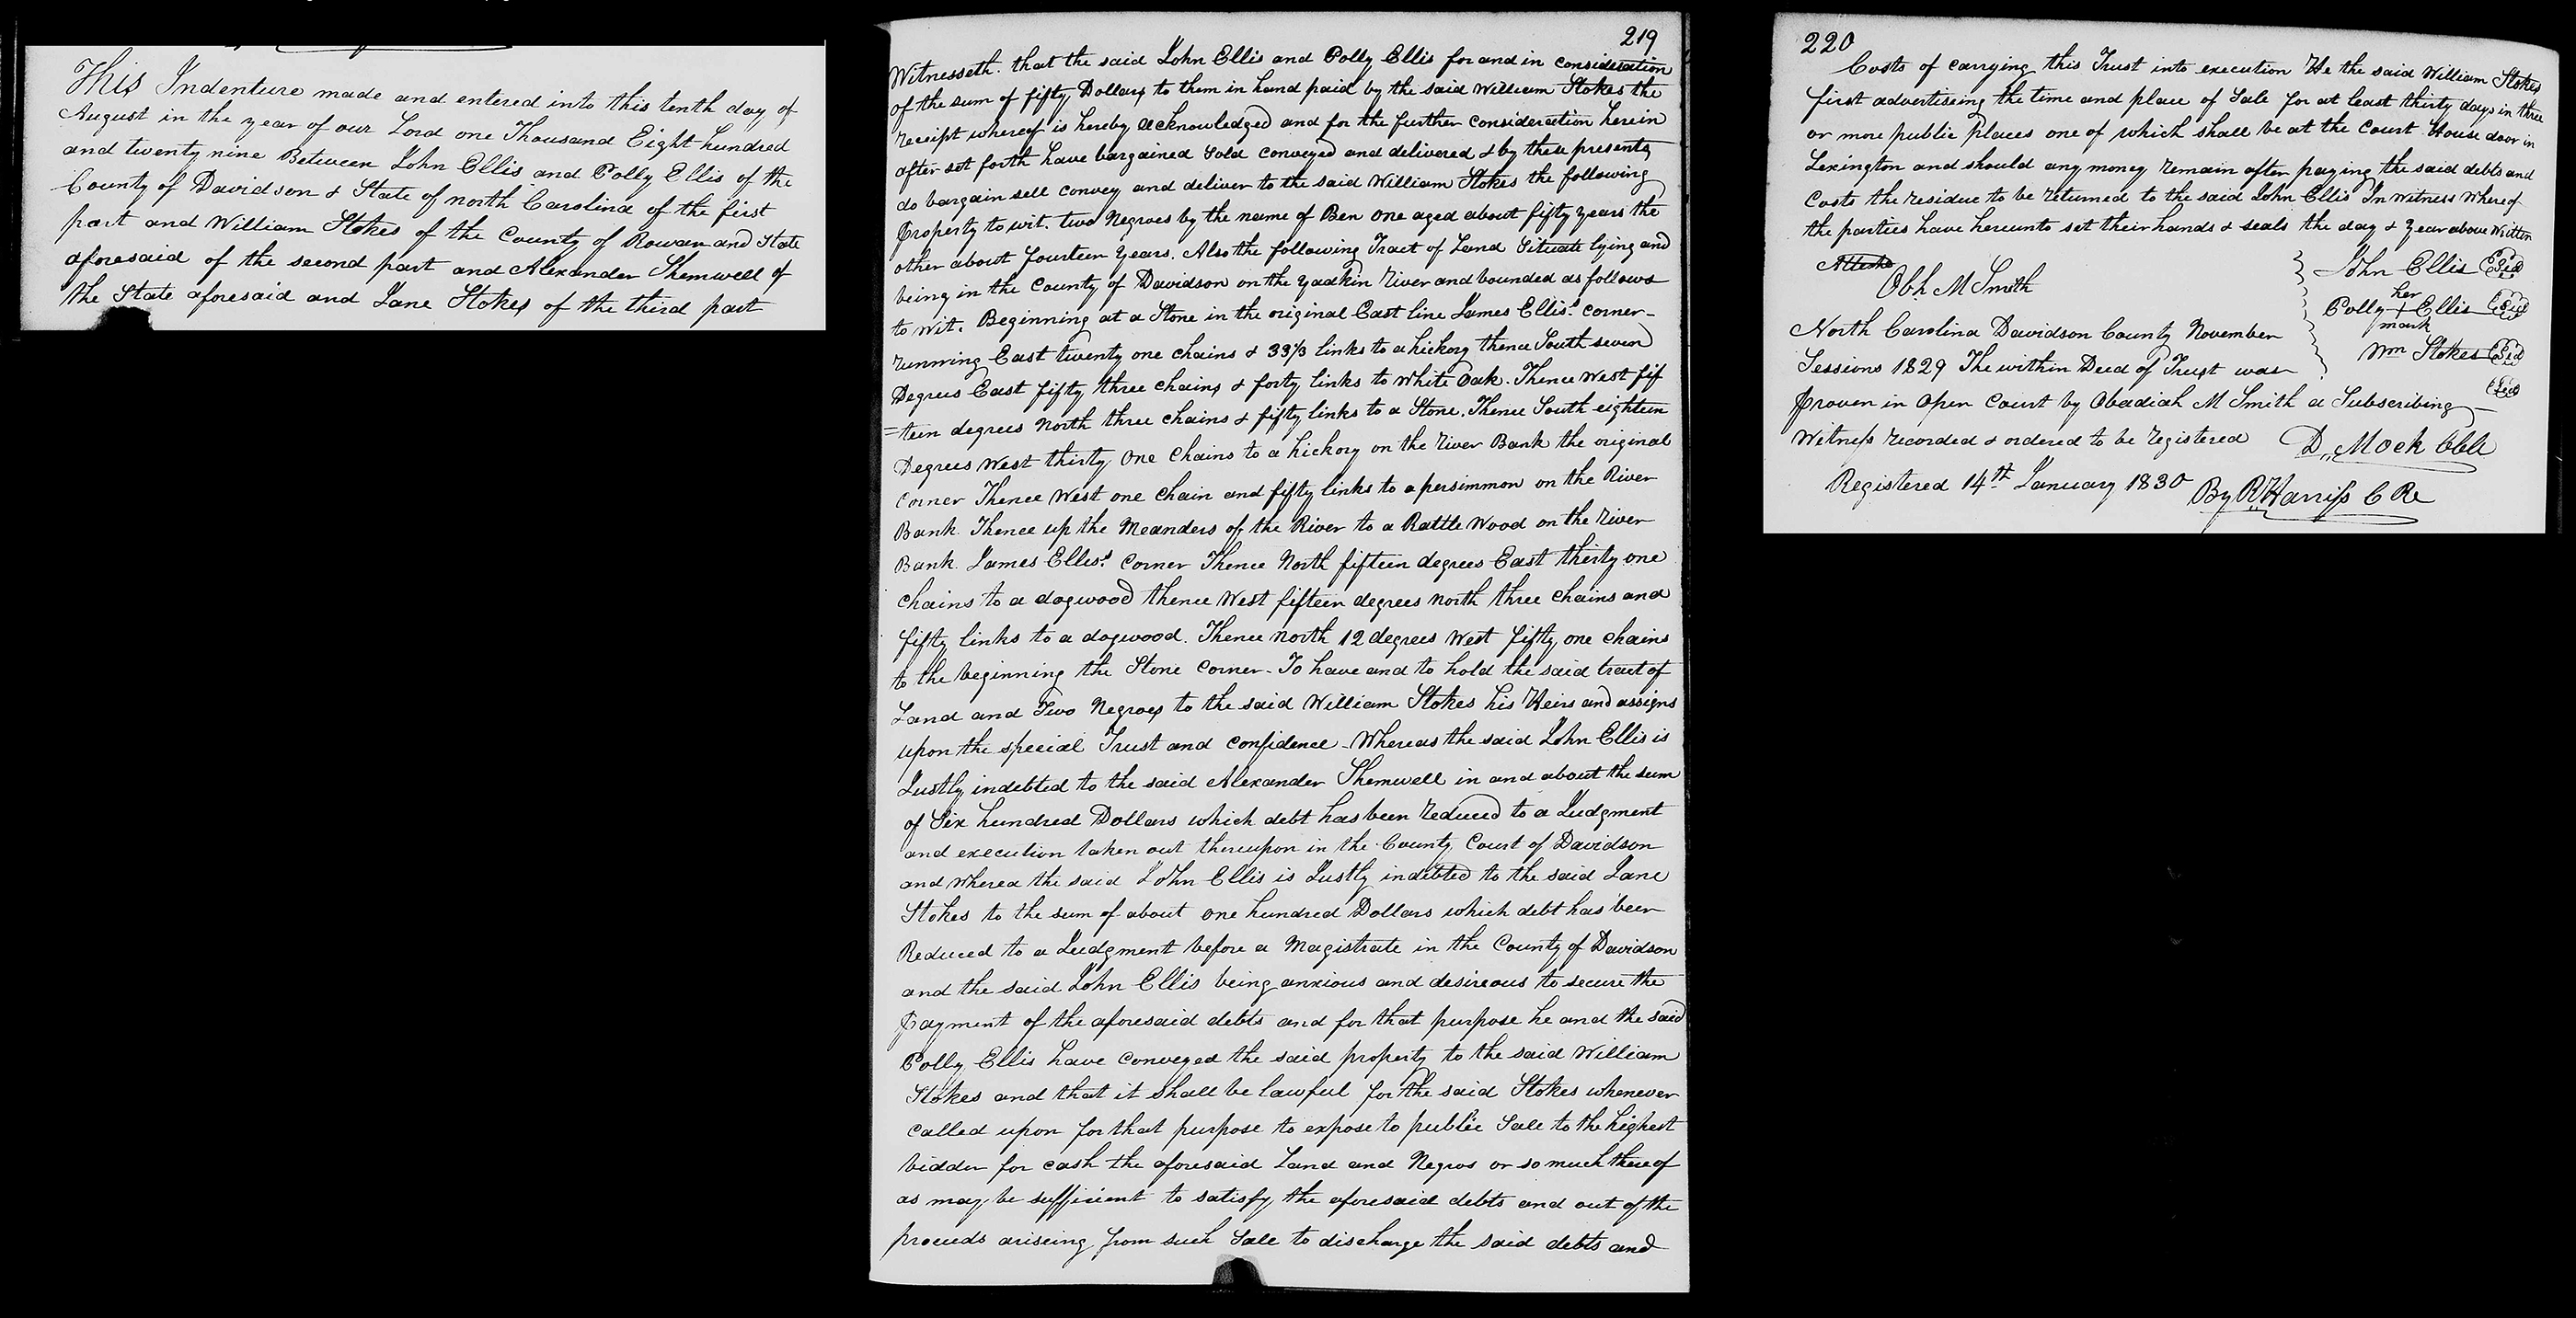 This Indenture made and entered into this tenth day of
August in the year of our Lord one Thousand Eight hundred
and twenty nine Between John Ellis and Polly Ellis of the
County of Davidson & State of north Carolina of the first
part and William Stokes of the County of Rowan and State
aforesaid of the second part and Alexander Shemwell of
the State aforesaid and Jane Stokes of the third part
219
Witnesseth. that the said John Ellis and Polly Ellis for and in consideration
of the sum of fifty Dollars to them in hand paid by the said William Stokes the
receipt whereof is hereby acknowledged and for the further consideration herein
after set forth have bargained Sold conveyed and delivered & by these presents
do bargain sell convey and deliver to the said William Stokes the following
Property to wit. two Negroes by the name of Ben one aged about fifty years the
other about fourteen years. Also the following Tract of Land Situate lying and
being in the County of Davidson on the Yadkin River and bounded as follows
to wit. Beginning at a Stone in the original East line James Ellis's corner-
running East twenty one chains & 33⅓ links to a hickory thence South seven
Degrees East fifty three chains & forty links to White Oak. Thence West fif
=teen degrees North three chains & fifty links to a Stone. Thence South eighteen
Degrees West thirty One Chains to a hickory on the River Bank the original
Corner Thence West one chain and fifty links to a persimmon on the River
Bank Thence up the Meanders of the River to a Rattle Wood on the River
Bank James Ellis's Corner Thence North fifteen degrees East thirty one
Chains to a dogwood thence West fifteen degrees North three Chains and
fifty links to a dogwood. Thence north 12 degrees West fifty one chains
to the beginning the Stone Corner - To have and to hold the said tract of
Land and Two Negroes to the said William Stokes his Heirs and assigns
upon the special Trust and confidence - Whereas the said John Ellis is
Justly indebted to the said Alexander Shemwell in and about the sum
of Six hundred Dollars which debt has been Reduced to a Judgment
and execution taken out thereupon in the County Court of Davidson
and Wherea the said John Ellis is Justly indebted to the said Jane
Stokes to the sum of about one hundred Dollars which debt has been
Reduced to a Judgment before a Magistrate in the County of Davidson
and the said John Ellis being anxious and desireous to secure the
Payment of the aforesaid debts and for that purpose he and the said
Polly Ellis have Conveyed the said property to the said William
Stokes and that it Shall be lawful for the said Stokes whenever
Called upon for that purpose to expose to public Sale to the highest
bidder for cash the aforesaid Land and Negros or so much thereof
as may be sufficient to satisfy the aforesaid debts and out of the
proceeds ariseing from such Sale to discharge the said debts and
220
Costs of carrying this Trust into execution He the said William Stokes
first advertiseing the time and place of Sale for at least thirty days in three
or more public places one of which shall be at the Court House door in
Lexington and should any money remain after paying the said debts and
Costs the residue to be returned to the said John Ellis In Witness Whereof
the parties have hereunto set their hands & seals the day & Year above Written
Atteste
Obh M Smith
John Ellis Seal
her
Polly + Ellis Seal
mark
Wm Stokes Seal
Seal
North Carolina Davidson County November
Sessions 1829 The within Deed of Trust was
Proven in Open Court by Obadiah M Smith a Subscribing
Witness recorded & ordered to be registered D. Mock Clk
Registered 14th January 1830 By R Harriss C Re